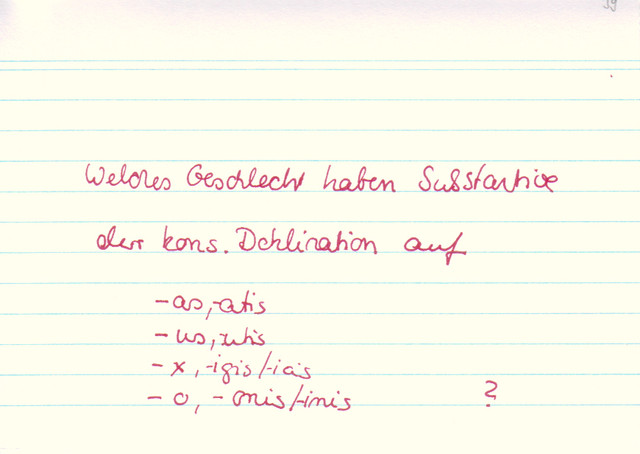 Welches Geschlecht haben Substantive
der kons. Deklination auf
-as, -atis
-us, -utis
-x, -igis/-icis
-o, -onis/-inis ?